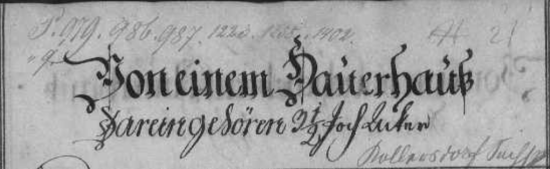 P. 979. 986. 987. 1223. 1402.
Von einem Paurrhauß
Darein gehören 3½ Joch Acker
Kollersdorf